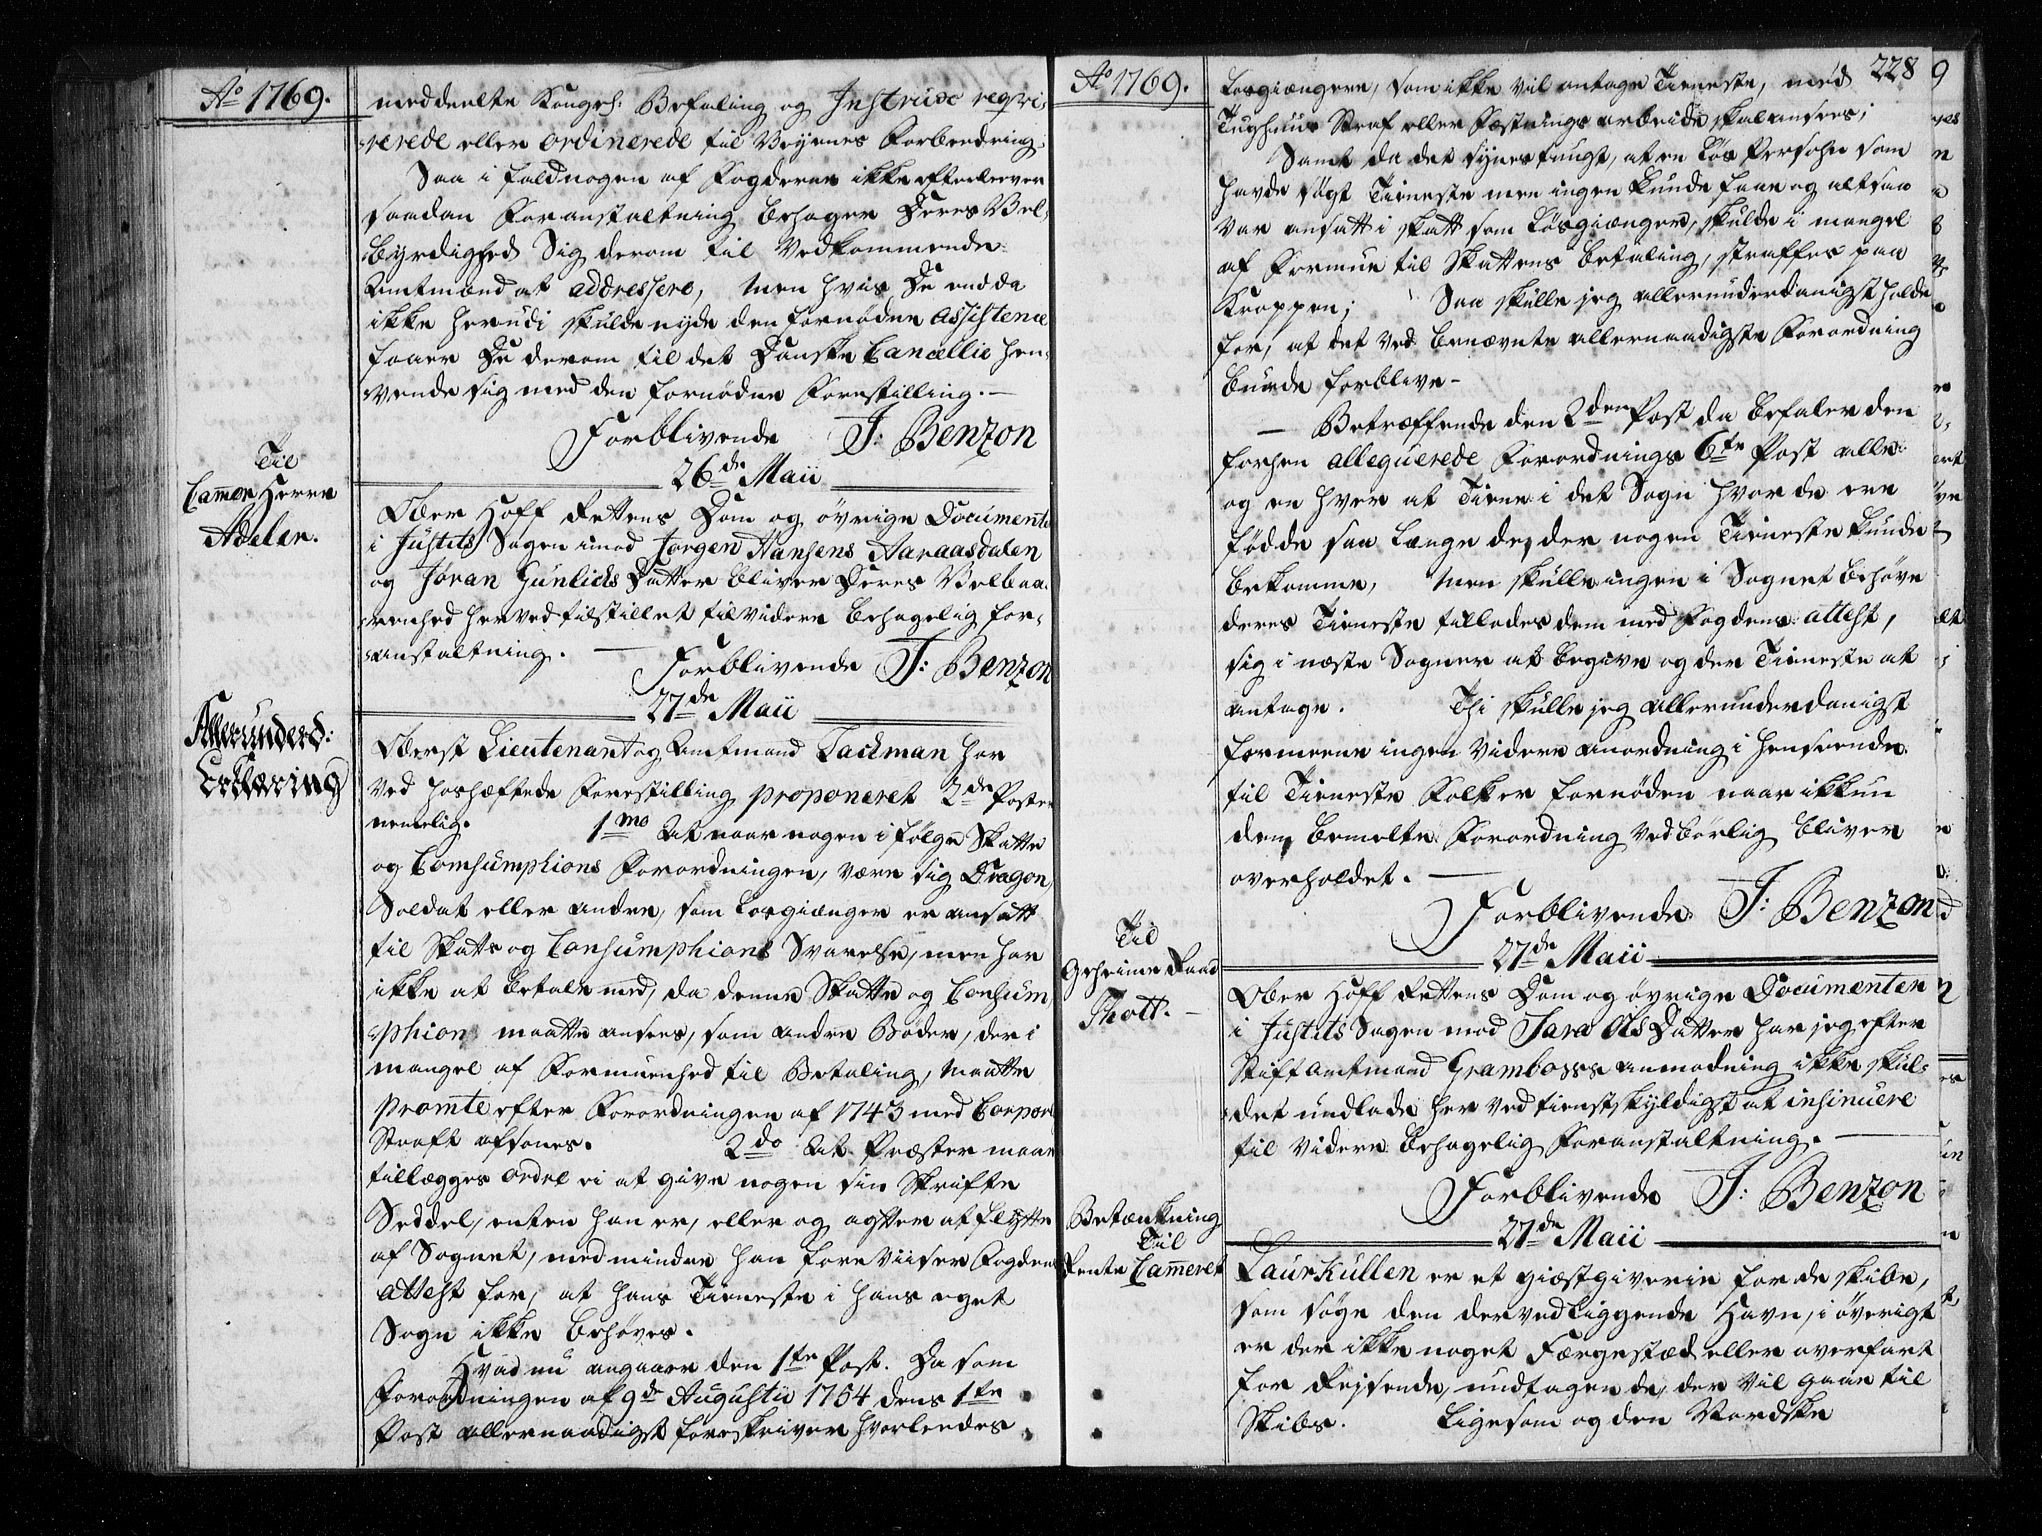 Ao 1769.
meddeelte Kongel: Befaling og Instruxe reqvi-
rerede eller ordinerede til Veyenes Forbeedring.
Saa i fald nogen af Fogderne ikke efterlever
saadan Foranstaltning behager Deres Vel-
byrdighed Sig derom til Vedkommende
Amtmand at addressere, Men hvis De endda
ikke herudi skulde nyde den fornødne Assistence
faaer De derom til det Danske Cancellie hen-
vende sig med den fornødne Forestilling.
Forblivende J: Benzon
26de Maii
Til
Cammer Herre
Adeler.
Ober Hoff Rettens Dom og øvrige Documenter
i Justits Sagen imod Jørgen Hansens Aaraasdalen
og Jøran Gunlichs Datter bliver Deres Velbaa-
renhed herved tilstillet til videre behagelig for-
anstaltning.
Forblivende J: Benzon
27de Maii
Allerunderd:
Erklæring
Oberst Lieutenant og Amtmand Tackman har
ved hoshæftede Forestilling proponeret 2de Poster
nemlig. 1mo At naar nogen i følge Skatte
og Comsumphions Forordningen, være sig Dragon,
Soldat eller andre, som Løsgiænger er ansatt
til Skatts og Consumphions Svarelse, men har
ikke at betale med, da denne Skatte og Consum-
phions maatte ansees, som andre Bøder, der i
mangel af Formuenhed til Betaling, maatte
promte efter Forordningen af 1743 med Corporl
Straff afsones. 2do At Præster maae
tillægges ordre ei at give nogen sin Skrifte
Seddel, enten han er, eller og agter at flytte
af Sognet, med mindre han foreviiser Fogdens
Attest for, at hans Tieneste i hans eget
Sogn ikke behøves.
Hvad nu angaaer den 1te Post. Da som
Forordningen af 9de Augustii 1754 dens 1te
Post allernaadigst foreskriver hvorledes
Ao 1769.
228
Løsgiængere, som ikke vil antage Tieneste, med
Tugthuus Straf eller Fæstnings arbeide skal ansees;
Samt da det synes tungt, at en løs Persohn som
havde søgt Tieneste men ingen kunde faae og altsaa
var ansatt i skatt som Løsgiænger, skulde i mangel
af Formue til Skattens betaling, straffes paa
Kroppen; Saa skulle jeg allerunderdanigst holde
for, at det ved benævnte allernaadigste Forordning
burde forblive-
Betræffende den 2den Post da befaler den
forhen alleguerede Forordnings 6te Post alle
og en hver at Tiene i det Sogn hvor de ere
fødde saa længe de der nogen Tieneste kunde
bekomme, Men skulle ingen i Sognet behøve
deres Tieneste tillades dem med Fogdens attest,
sig i næste Sogner at begive og der Tieneste at
antage. Thi skulle jeg allerunderdanigst
formeene ingen Videre anordning i henseende
til Tieneste Folk er fornøden naar ikkun
den bemelte Forordning ved børlig bliver
overholdet.
Forblivende J: Benzon
27de Maii
Til
Geheime Raad
Thott.
Ober Hoff Rettens Dom og øvrige Documenter
i Justits Sagen mod Sara Ols Datter har jeg efter
Stiftamtmand Grambows anmodning ikke skul-
det undlade her ved tienstskyldigst at insinuere
til videre behagelig Foranstaltning.
Forblivende J: Benzon
27de Maii
Betænkning
Til
Rente Cammeret
Laurkullen er et giæstgiverie for de skibe,
som søge den derved liggende Havn, i øvrigt
er der ikke noget Færgestæd eller overfart
for Reisende, undtagen de, der vil gaae til
Skibs. Ligesom og den Nordske